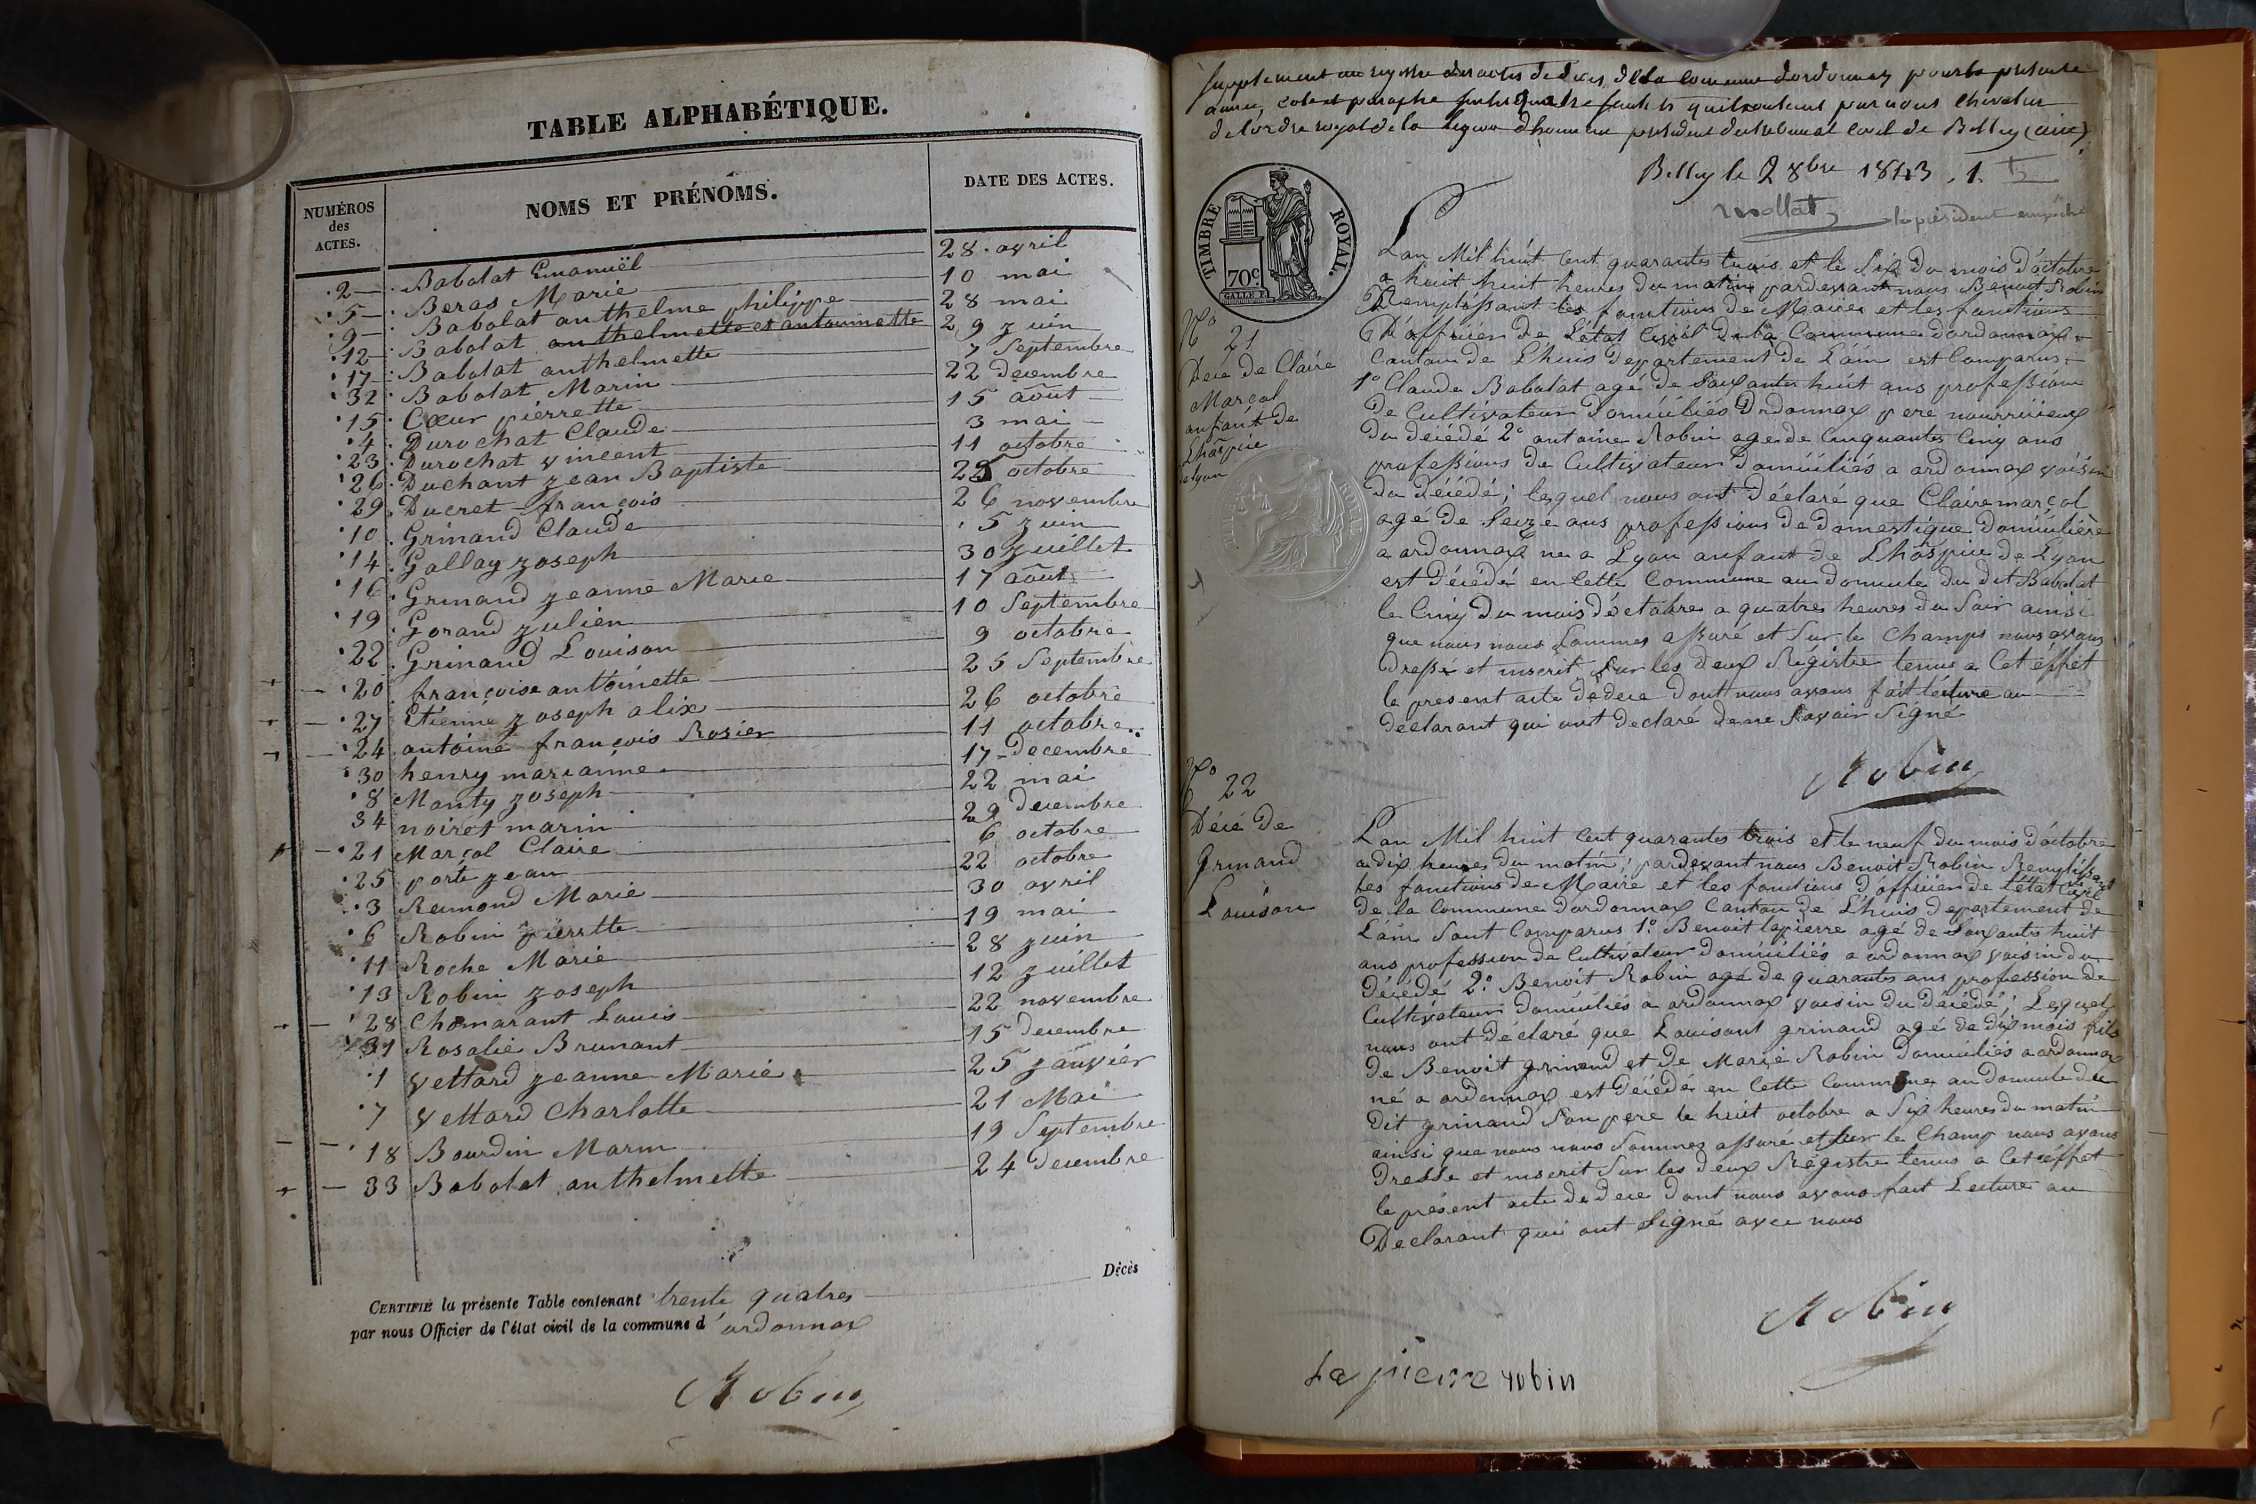 TABLE ALPHABÉTIQUE.
NUMÉROS des ACTES. NOMS ET PRÉNOMS. DATE DES ACTES.
2 Babolat Emanuël 28 avril
5 Beras Marie 10 mai
9 Babolat anthelme philippe 28 mai
12 Babolat anthelmette et antoinette 29 juin
17 Babolat anthelmette 7 Septembre
32 Babolat Marin 22 decembre
15 Cœur pierrette 15 août
4 Durochat Claude 3 mai
23 Durochat vincent 11 octobre
26 Duchant jean Baptiste 25 octobre
29 Ducret françois 26 novembre
10 Grinand Claude 5 juin
14 Gallay joseph 30 juillet
16 Grinand jeanne Marie 17 août
19 Gorand julien 10 Septembre
22 Grinand Louison 9 octobre
20 françoise antoinette 25 Septembre
27 Etienne joseph alix 26 octobre
24 antoine françois Rosier 11 octobre
30 henry marianne 17 decembre
8 Manty joseph 22 mai
34 noiret marin 29 decembre
21 Marçol Claire 6 octobre
25 porte jean 22 octobre
3 Remond Marie 30 avril
6 Robin pierrette 19 mai
11 Roche Marie 28 juin
13 Robin joseph 12 juillet
28 Chomarant Louis 22 novembre
31 Rosalie Brunant 15 decembre
1 vettard jeanne Marie 25 janvier
7 vettard Charlotte 21 Mai
18 Bourdin Marin 19 Septembre
33 Babolat anthelmette 24 decembre
Décès
CERTIFIÉ la présente Table contenant trente quatres
par nous Officier de l'état civil de la commune d'ordonnax
Robin
Supplement au registre des actes de déces de la commune dordonnax pour la présente
année, coté et paraphé par nous Chevalier
de l'ordre royal de la légion dhonneur president du tribunal civil de Belley (ain)
Belley le 2 8bre 1843. 1.
Mollat le président empêché
TIMBRE ROYAL.
70c.
Lan Mil huit cent quarantes trois et le Six du mois d'octobre
a huit heures du matin pardevant nous Benoit Robin
Remplissant les fonctions de Maire et les fonctions
D'officier de L'état Civil de la Commune dordonnax
Canton de Lhuis Departement de L'ain est Comparus
1° Claude Babolat agé de Soixantes huit ans profession
De Cultivateur Domiciliés Ordonnax pere nourricieux
Du décédé 2° antoine Robin age de Cinquantes Cinq ans
professions de Cultivateur Domiciliés a ordonnax voisin
Du Décédé; lequel nous ont Déclaré que Claire marçol
agé De Seize ans professions De domestique Domicilière
a ordonnax né a Lyon anfant de Lhospice de Lyon
est Décédé en Cette Commune au domicile du dit Babolat
le Cinq Du mois d'octobre a quatres heures du Soir ainsi
que nous nous Sommes assuré et Sur le Champs nous avons
Dressé et inscrit Sur les deux Régistre tenus a Cet éffet
le present acte de dece Dont nous avons fait lécture au
declarant qui ont declaré de ne Savoir Signé
Robin
No 21
Dece de Claire
Marçol
anfant de
Lhospice
de lyon
No 22
Décé De
Grinand
Louison
Lan Mil huit cent quarantes trois et le neuf du mois d'octobre
a dix heures du matin; pardevant nous Benoit Robin Remplissant
les fonctions de Maire et les fonctions d'officier de L'état Civil
De la Commune dordonnax Canton de Lhuis departement de
L'ain Sont Comparus 1° Benoit lapierre agé de Soixantes huit
ans profession de Cultivateur Domiciliés a ordonnax voisin du
Décédé 2° Benoit Robin agé de quarantes ans profession de
Cultivateur Domiciliés a ordonnax voisin du Décédé; Lequel
nous ont Déclaré que Louisont grinand agé de dix mois fils
De Benoit grinand et de Marie Robin Domiciliés a ordonnax
né a ordonnax est Décédé en Cette Commune au Domicile du
dit grinand Son pere le huit octobre a Six heures du matin
ainsi que nous nous Sommes assuré et Sur le Champ nous avons
Dressé et inscrit Sur les deux Régistre tenus a Cet éffet
le présent acte de dece Dont nous avons fait Lecture au
Declarant qui ont Signé avec nous
Robin
La pierre robin